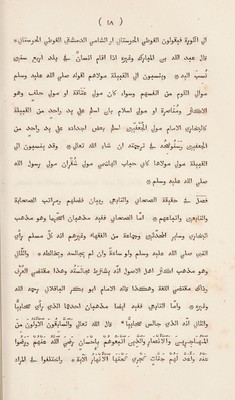 ( ١٨ )
الى الكورة فيقولون الغوطي الحرستاني او الشامي الدمشقي الغوطي الحرستاني *
قال عبد الله بن المبارك وغيره اذا اقام انسان في بلد اربع سنين
نُسب اليه * وينسبون الى القبيلة مولاهم لقوله صلى الله عليه وسلم
مولى القوم من انفسهم وسواء كان مولى عتاقة او مولى حلف وهو
ومناصرة او مولى اسلام بان اسلم على يد واحد من القبيلة
كالبخاري الامام مولى الجعفيين اسلم بعض اجداده على يد واحد من
الجعفيين في ترجمته ان شاء الله تعالى * وقد ينسبون الى
القبيلة مولى مولاها كابي حباب الهاشمي مولى شقران مولى رسول الله
صلى الله عليه وسلم *
فصل في حقيقة الصحابي والتابعي وبيان فضلهم ومراتب الصحابة
والتابعين واتباعهم * امّا الصحابي ففيه مذهبان اصحّهما وهو مذهب
البخاري وسائر المحدّثين وجماعة من الفقهاء وغيرهم انه كلّ مسلم رأى
النبي صلى الله عليه وسلم ولو ساعة وان لم يجالسه ويخالطه * والثاني
وهو مذهب اكثر اهل الاصول انه يشترط مجالسته وهذا مقتضى العرف
وذاك مقتضى اللغة وهكذا قاله الامام ابو بكر الباقلاني رحمه الله
وغيره * وامّا التابعي ففيه ايضا مذهبان احدهما الذي رأى صحابيا
والثاني انه الذي جالس صحابيا * قال الله تعالى والسابقون الاولون من
المهاجرين والانصار والذين اتبعوهم باحسان رضي الله عنهم ورضوا
عنه واعد لهم جنات تجري تحتها الانهار الآية * واختلفوا في المراد